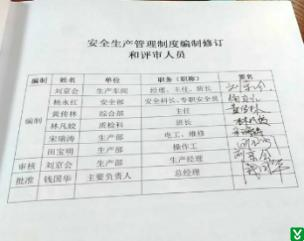 安全生产管理制度编制修订
和评审人员
编制 姓名 单位 职务（职称） 签名
编制 刘京会 生产车间 经理、主任、班长
杨永红 安全部 安全科长、专职安全员
黄传林 综合部 主任
林凡蛟 质检科 班长
宋瑞涛 生产部 电工、维修
田宝明 生产部 操作工
审核 刘京会 生产部 生产经理
批准 钱国华 主要负责人 总经理